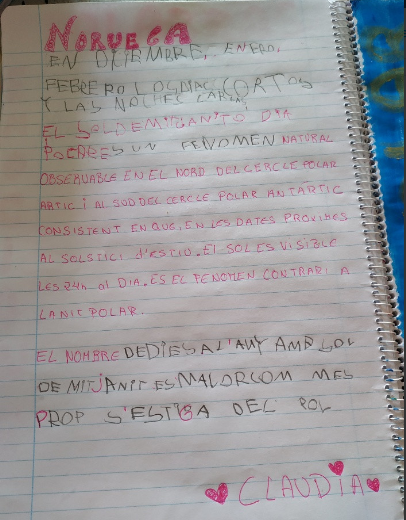 NORUEGA
EN DICIEMBRE, ENERO,
FEBRERO LOS CORTOS
Y LAS NOCHES LARGAS
EL SOL DE MITJANIT O DIA
POLAR ES UN FENOMEN NATURAL
OBSERVABLE EN EL NORD DEL CERCLE POLAR
ARTIC I AL SUD DEL CERCLE POLAR ANTARTIC
CONSISTENT EN QUE, EN LES DATES PROXIMES
AL SOLSTICI d'ESTIO. El SOL ES VISIBLE
LES 24h al DIA. ES EL FENOMEN CONTRARI A
LA NIT POLAR.
EL NOMBRE DE DIES A L'ANY AMB SOL
DE MITJANIT ES MAJOR COM MES
PROP S'ESTIGA DEL POL
CLAUDIA